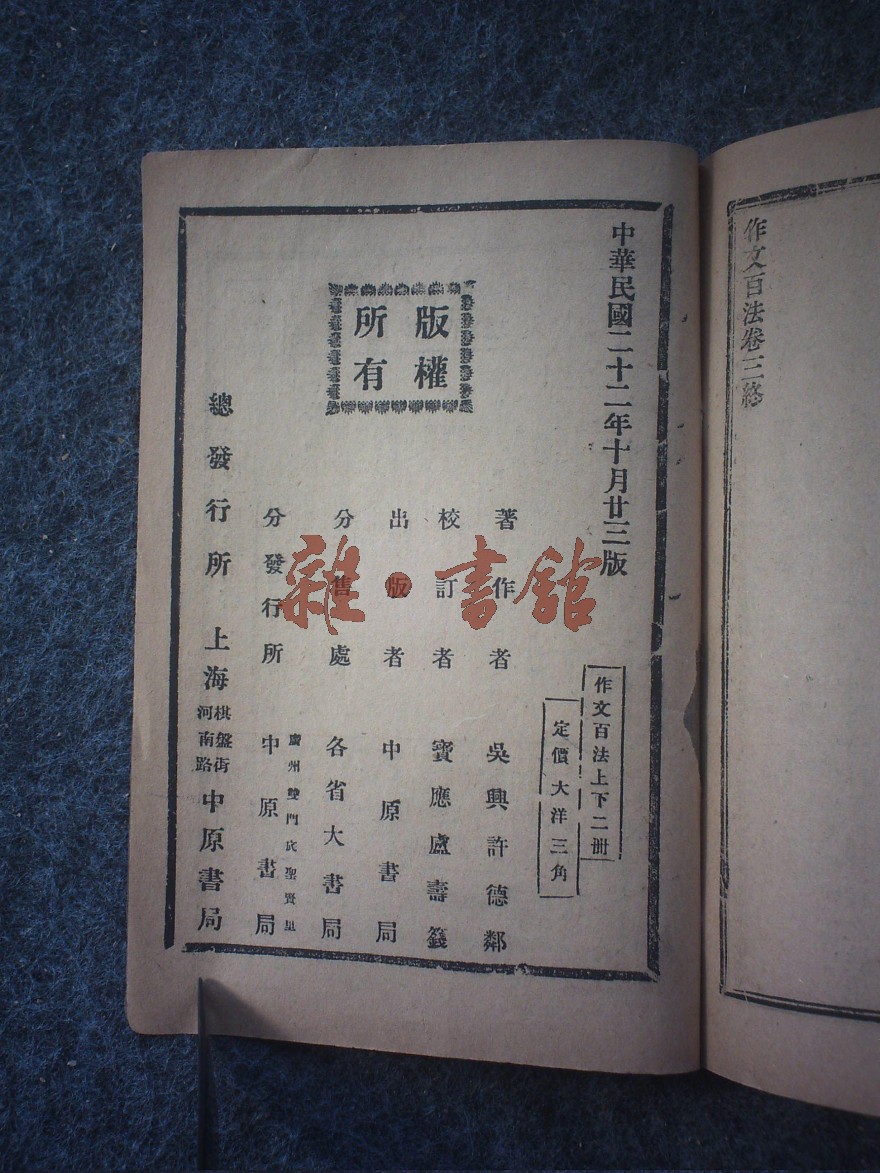 作文百法卷三終
中華民國二十二年十月廿三版
作文百法上下二冊
定價大洋三角
著作者 吳興許德鄰
校訂者 寶應盧壽籛
出版者 中原書局
分售處 各省大書局
分發行所 廣州雙門底聖賢里 中原書局
總發行所 上海棋盤街河南路中原書局
版權
所有
雜·書館